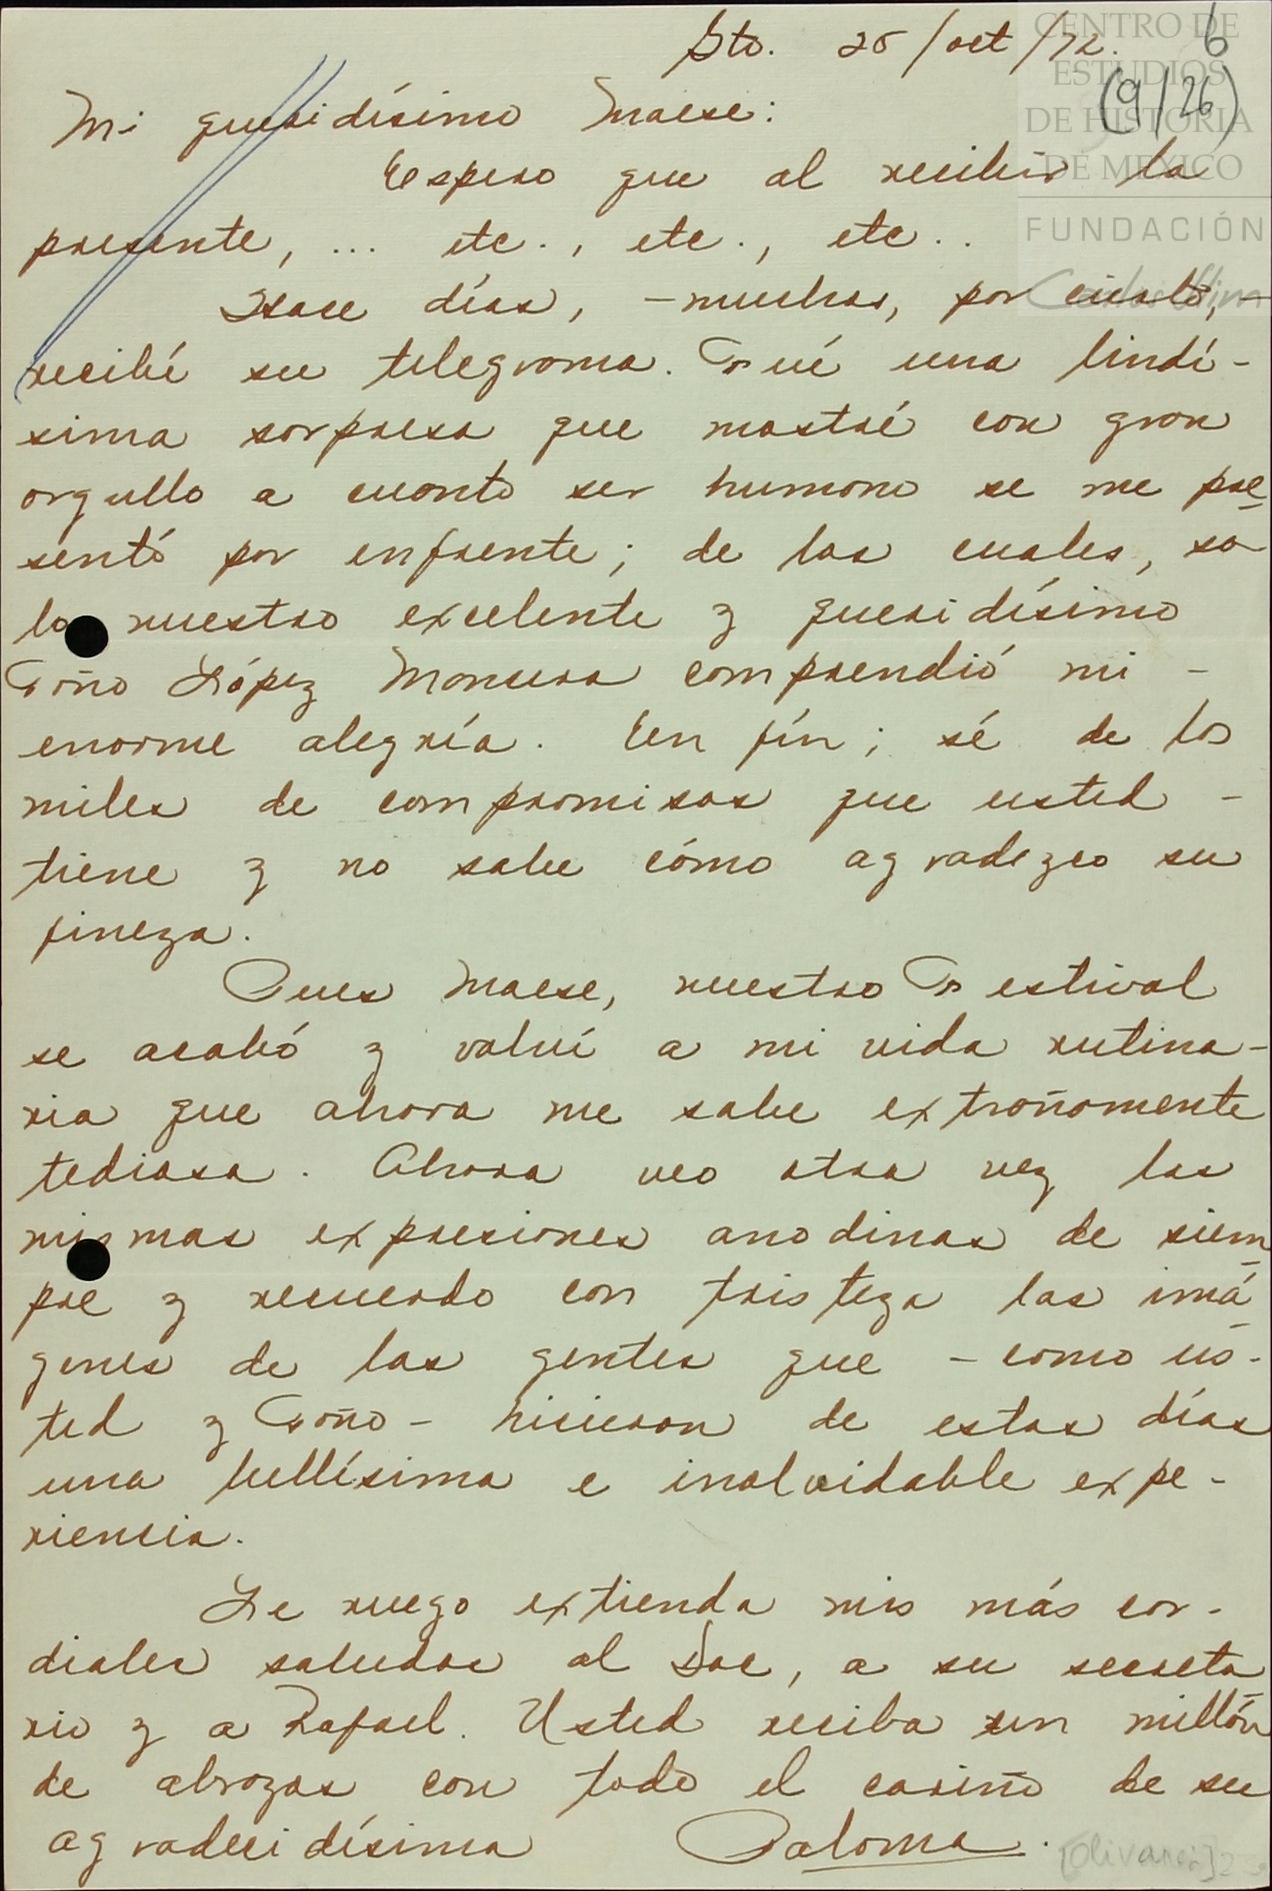 Gto. 25/oct/72. 6
(9/26)
CENTRO DE
ESTUDIOS
DE HISTORIA
DE MEXICO
FUNDACIÓN
Carlos Slim
Mi queridísimo Maese:
Espero que al recibir la
presente, ... etc., etc., etc..
Hace días, - muchos, por cierto, -
recibí su telegrama. Fué una lindí-
sima sorpresa que mostré con gran
orgullo a cuanto ser humano se me pre
sentó por enfrente; de los cuales, so
lo nuestro excelente y queridísimo
Toño López Mancera comprendió mi -
enorme alegría. En fín; sé de los
miles de compromisos que usted -
tiene y no sabe cómo agradezco su
fineza.
Pues Maese, nuestro Festival
se acabó y volví a mi vida rutina-
ria que ahora me sabe extrañamente
tediosa. Ahora veo otra vez las
mismas expresiones anodinas de siem
pre y recuerdo con tristeza las imá
genes de las gentes que - como us-
ted y Toño - hicieron de estos días
una bellísima e inolvidable expe-
riencia.
Le ruego extienda mis más cor-
diales saludos al Doc, a su secreta
rio y a Rafael. Usted reciba un millón
de abrazos con todo el cariño de su
agradecidísima Paloma.
[Olivares]